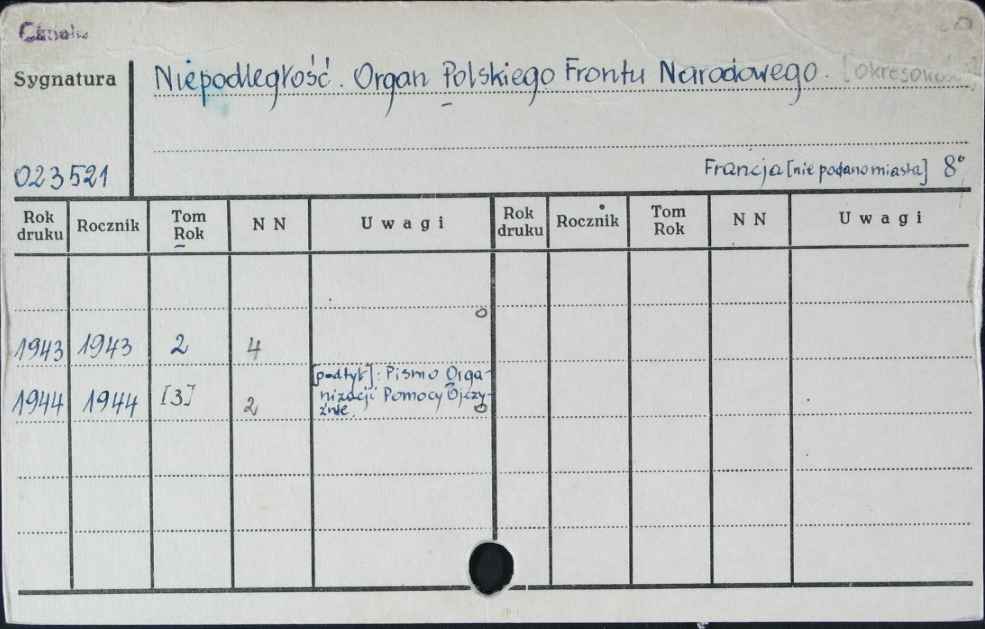 Sygnatura
Niepodległość. Organ Polskiego Frontu Narodowego.
023521
Francja [nie podano miasta] 8°
Rok druku Rocznik Tom Rok NN Uwagi Rok druku Rocznik Tom Rok NN Uwagi
1943 1943 2 4
[podtyt]: Pismo Orga-
1944 1944 [3] 2 nizacji Pomocy Ojczy-
źnie.